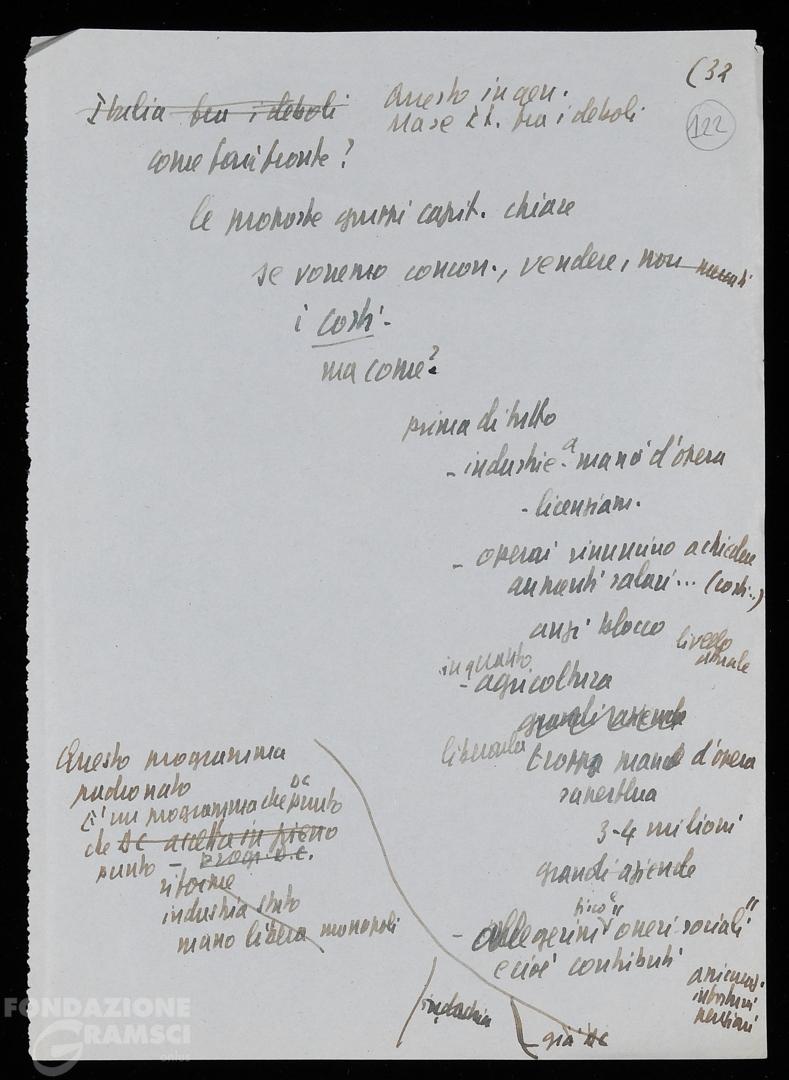 (32
122
Italia tra i deboli
Questo in gen.
Ma se It. tra i deboli
come farvi fronte?
le proposte gruppi capit. chiare
se vorremo concorr., vendere, non
i costi -
ma come?
prima di tutto
- industrie - a mano d'opera
- licenziam.
- operai rinuncino a chiedere
aumenti salari... (costi..)
anzi blocco livello
attuale
in quanto
- agricoltura
grandi aziende
liberarla troppa mano d'opera
superflua
3-4 milioni
grandi aziende
- allegerim "oneri sociali"
e cioè contributi
infortuni
pensioni
Questo programma
padronato
è un programma che DC punto
che DC accetta in pieno
punto - progr. D.C.
riforme
industria stato
mano libera monopoli
- già DC
FONDAZIONE
GRAMSCI
onlus